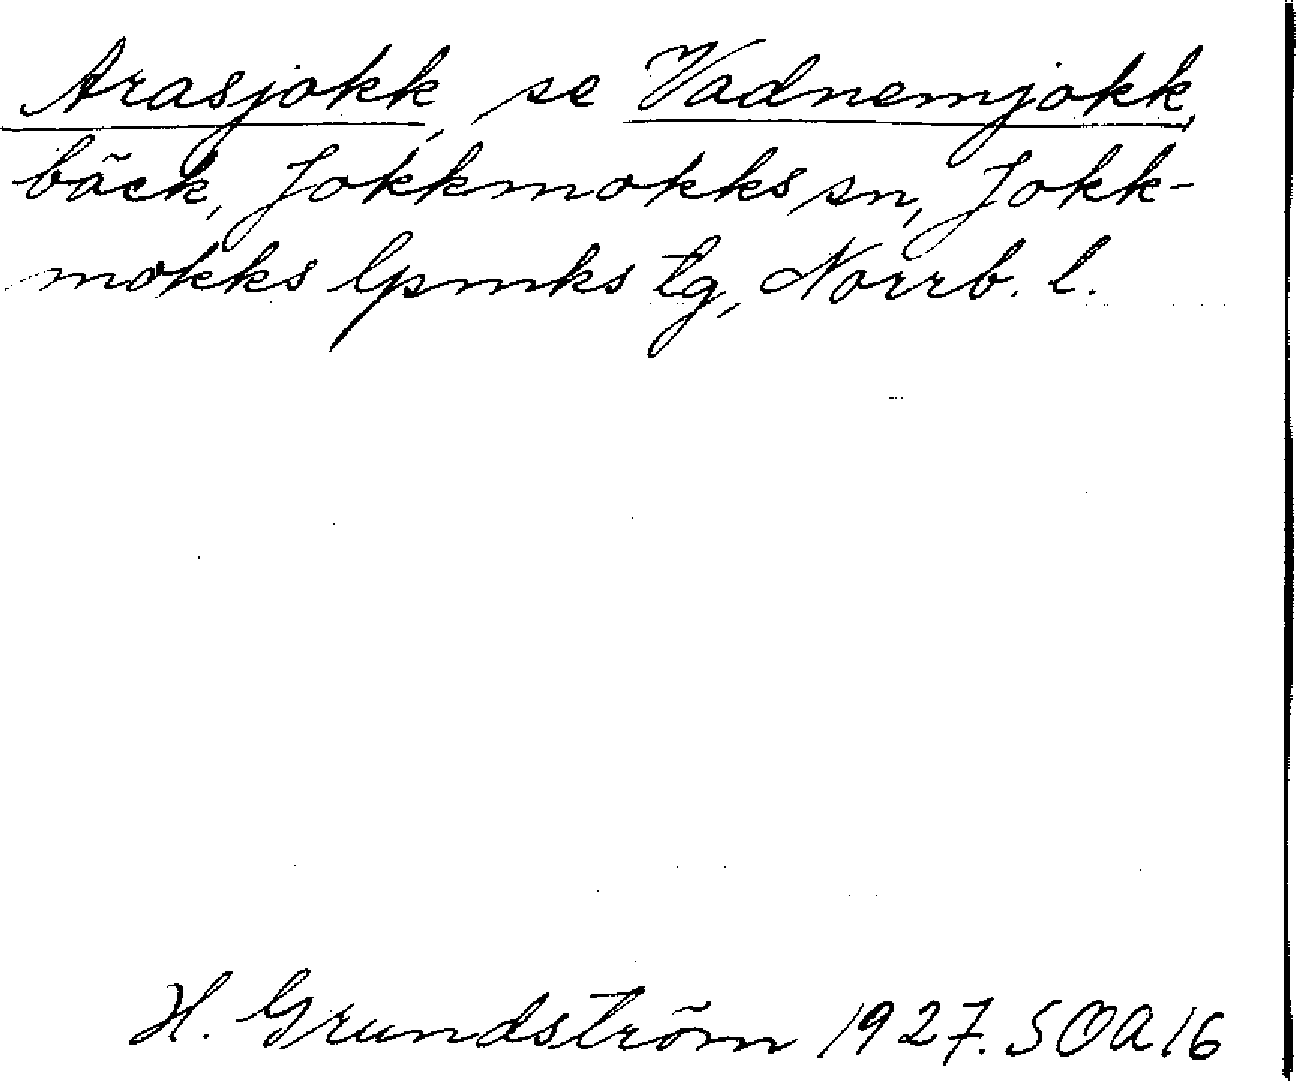 Arasjokk, se Vadnemjokk,
bäck, Jokkmokks sn, Jokk-
mokks lpmks tg, Norrb. l.
H. Grundström 1927. SOA 16